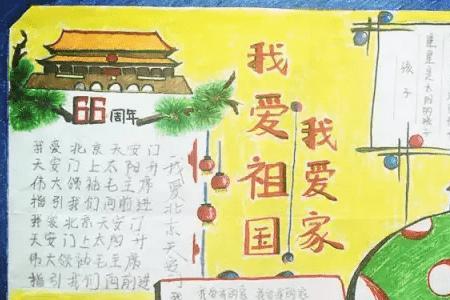 66周年
我爱北京天安门
天安门上太阳升
伟大领袖毛主席
指引我们向前进
我爱北京天安门
天安门上太阳升
伟大领袖毛主席
指引我们向前进
我爱北京天安门
我爱祖国
我爱家
孩子
星是太阳的孩子